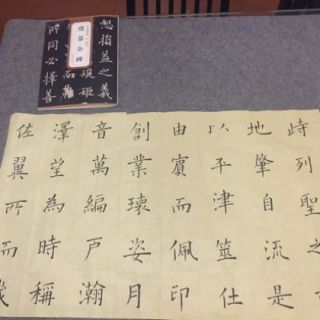 損益之義
規姬
公碑
同必擇善
峙列聖之
地肇自流是
以平津筮仕
由賓而佩印
創業瓌姿月
音萬編戶瀚
澤望為時稱
佐翼所而